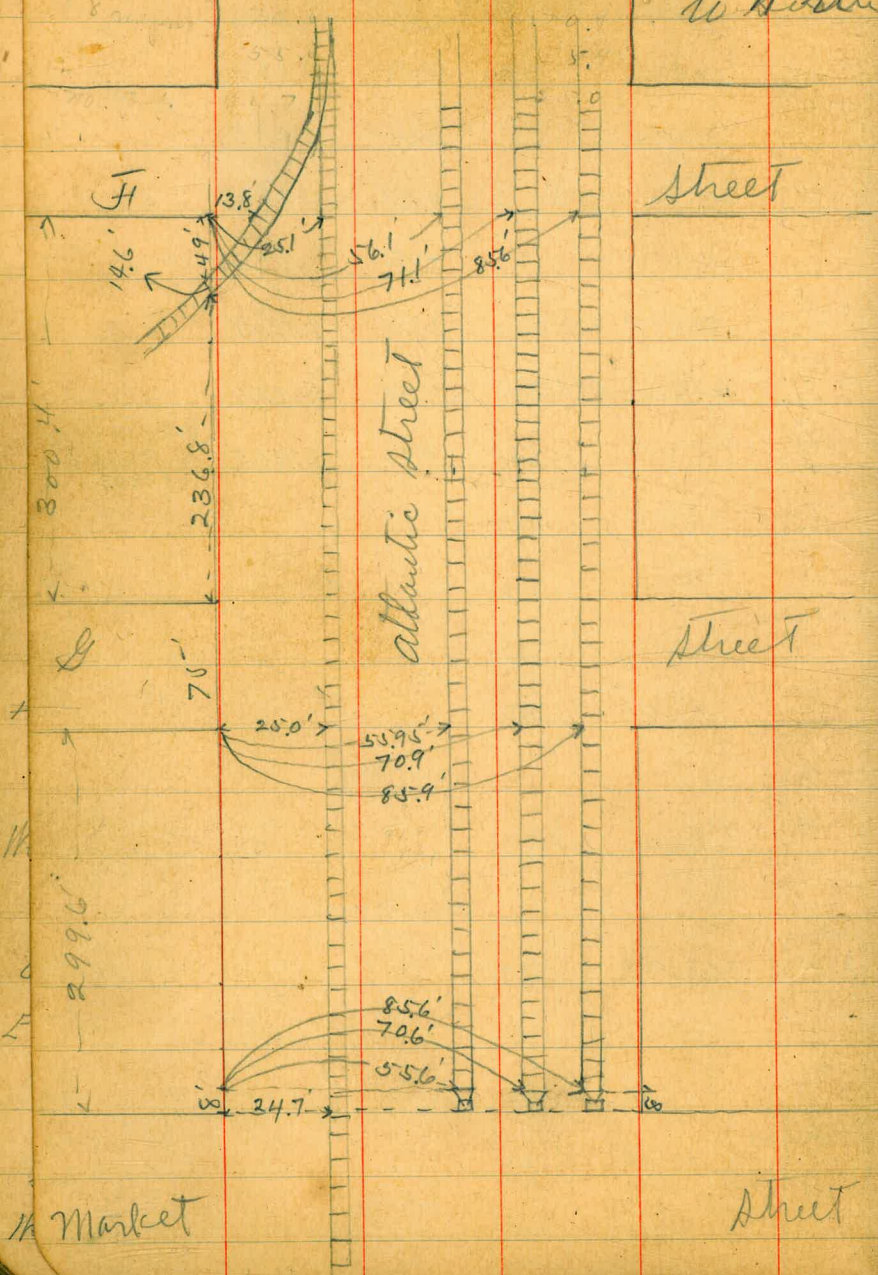 F
Street
13.8'
14.6'
49'
25.1'
56.1'
71.1'
85.6'
300.4'
236.8'
Atlantic Street
G
Street
75'
25.0'
55.95'
70.9'
85.9'
299.6'
85.6'
70.6'
55.6'
8'
24.7'
8'
Market
Street